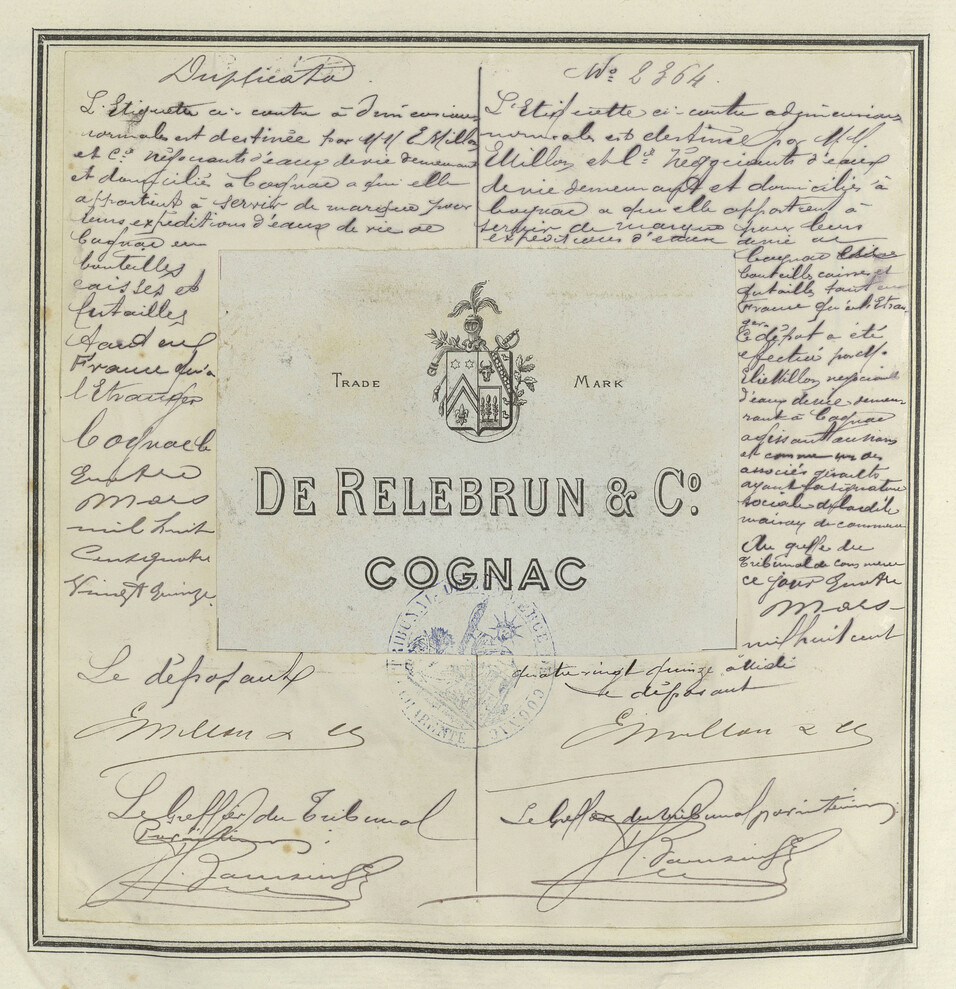 Duplicata.
L'Etiquette ci-contre à dimensions
normales est destinée par MM E. Millon
et Cie négociants d'eaux de vie demeurant
et domiciliés à Cognac a qui elle
appartient à servir de marque pour
leurs expéditions d'eaux de vie de
Cognac en
bouteilles
caisses et
futailles
tant en
France qu'à
l'Etranger
Cognac le
quatre
Mars
mil huit
cent quatre
vingt quinze.
Le déposant
E Millon & Cie
Le Greffier du Tribunal
No 2364.
L'Etiquette ci-contre à dimensions
normales est destinée par MM.
E Millon et Cie Négociants d'eaux
de vie demeurant et domiciliés à
Cognac a qui elle appartient à
servir de marque pour leurs
expéditions d'eaux de vie de
Cognac
bouteilles caisses et
futailles tant en
France qu'à l'Etran-
ger.
Ce dépôt a été
effectué par M.
Elie Millon négociant
d'eaux de vie demeu-
rant à Cognac
agissant au nom
et comme un des
associés gérants
ayant la signature
sociale de la dite
maison de commerce
Au greffe du
Tribunal de commerce
ce jour quatre
Mars
mil huit cent
quatre vingt quinze
le déposant
E Millon & Cie
Le Greffier du Tribunal
TRADE MARK
DE RELEBRUN & Co.
COGNAC
TRIBUNAL DE COMMERCE
COGNAC
CHARENTE